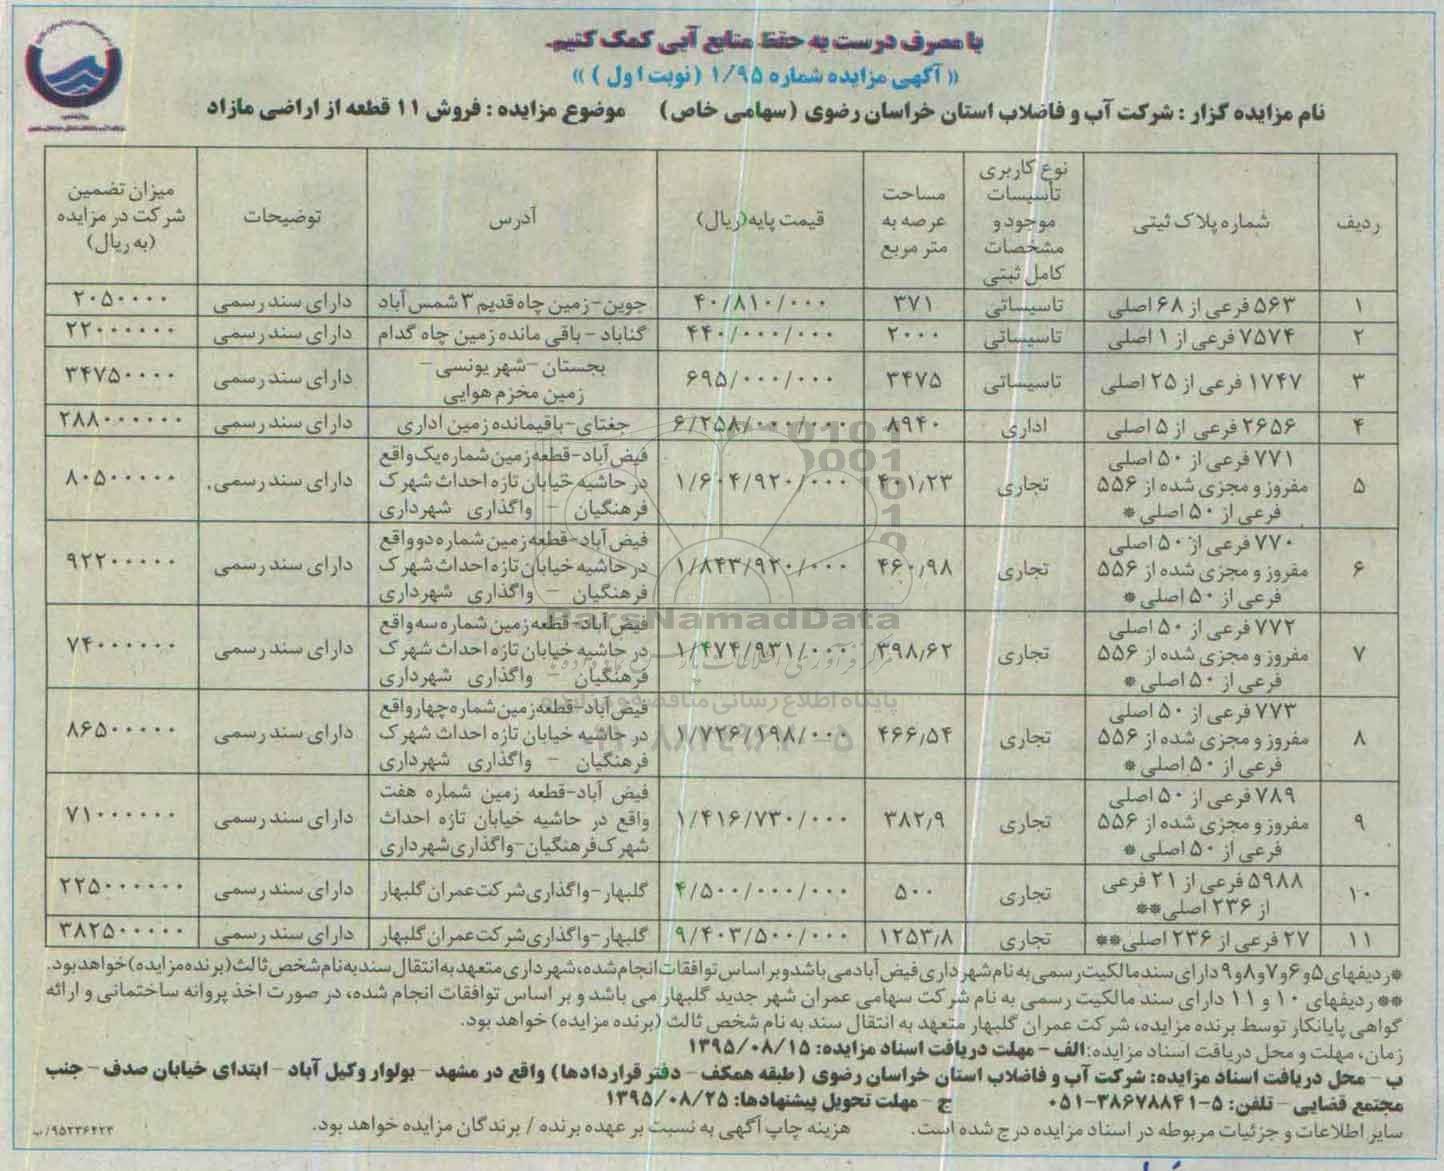 با مصرف درست به حفظ منابع آبی کمک کنیم.
(( آگهی مزایده شماره ۱/۹۵ (نوبت اول ) ))
نام مزایده گزار : شرکت آب و فاضلاب استان خراسان رضوی (سهامی خاص) موضوع مزایده : فروش ۱۱ قطعه از اراضی مازاد
ردیف | شماره پلاک ثبتی | نوع کاربری تأسیسات موجود و مشخصات کامل ثبتی | مساحت عرصه به متر مربع | قیمت پایه(ریال) | آدرس | توضیحات | میزان تضمین شرکت در مزایده (به ریال)
۱ | ۵۶۳ فرعی از ۶۸ اصلی | تاسیساتی | ۳۷۱ | ۴۰/۸۱۰/۰۰۰ | جوین-زمین چاه قدیم ۳ شمس آباد | دارای سند رسمی | ۲۰۵۰۰۰۰
۲ | ۷۵۷۴ فرعی از ۱ اصلی | تاسیساتی | ۲۰۰۰ | ۴۴۰/۰۰۰/۰۰۰ | گناباد - باقی مانده زمین چاه گدام | دارای سند رسمی | ۲۲۰۰۰۰۰۰
۳ | ۱۷۴۷ فرعی از ۲۵ اصلی | تاسیساتی | ۳۴۷۵ | ۶۹۵/۰۰۰/۰۰۰ | بجستان -شهر یونسی - زمین مخزم هوایی | دارای سند رسمی | ۳۴۷۵۰۰۰۰
۴ | ۲۶۵۶ فرعی از ۵ اصلی | اداری | ۸۹۴۰ | ۶/۲۵۸/۰۰۰/۰۰۰ | جغتای-باقیمانده زمین اداری | دارای سند رسمی | ۲۸۸۰۰۰۰۰۰
۵ | ۷۷۱ فرعی از ۵۰ اصلی مفروز و مجزی شده از ۵۵۶ فرعی از ۵۰ اصلی * | تجاری | ۴۰۱٫۲۳ | ۱/۶۰۴/۹۲۰/۰۰۰ | فیض آباد-قطعه زمین شماره یک واقع در حاشیه خیابان تازه احداث شهرک فرهنگیان - واگذاری شهرداری | دارای سند رسمی. | ۸۰۵۰۰۰۰۰
۶ | ۷۷۰ فرعی از ۵۰ اصلی مفروز و مجزی شده از ۵۵۶ فرعی از ۵۰ اصلی * | تجاری | ۴۶۰٫۹۸ | ۱/۸۴۳/۹۲۰/۰۰۰ | فیض آباد-قطعه زمین شماره دو واقع در حاشیه خیابان تازه احداث شهرک فرهنگیان - واگذاری شهرداری | دارای سند رسمی | ۹۲۲۰۰۰۰۰
۷ | ۷۷۲ فرعی از ۵۰ اصلی مفروز و مجزی شده از ۵۵۶ فرعی از ۵۰ اصلی * | تجاری | ۳۹۸٫۶۲ | ۱/۴۷۴/۹۳۱/۰۰۰ | فیض آباد-قطعه زمین شماره سه واقع در حاشیه خیابان تازه احداث شهرک فرهنگیان - واگذاری شهرداری | دارای سند رسمی | ۷۴۰۰۰۰۰۰
۸ | ۷۷۳ فرعی از ۵۰ اصلی مفروز و مجزی شده از ۵۵۶ فرعی از ۵۰ اصلی * | تجاری | ۴۶۶٫۵۴ | ۱/۷۲۶/۱۹۸/۰۰۰ | فیض آباد-قطعه زمین شماره چهار واقع در حاشیه خیابان تازه احداث شهرک فرهنگیان - واگذاری شهرداری | دارای سند رسمی | ۸۶۵۰۰۰۰۰
۹ | ۷۸۹ فرعی از ۵۰ اصلی مفروز و مجزی شده از ۵۵۶ فرعی از ۵۰ اصلی * | تجاری | ۳۸۲٫۹ | ۱/۴۱۶/۷۳۰/۰۰۰ | فیض آباد-قطعه زمین شماره هفت واقع در حاشیه خیابان تازه احداث شهرک فرهنگیان-واگذاری شهرداری | دارای سند رسمی | ۷۱۰۰۰۰۰۰
۱۰ | ۵۹۸۸ فرعی از ۲۱ فرعی از ۲۳۶ اصلی** | تجاری | ۵۰۰ | ۴/۵۰۰/۰۰۰/۰۰۰ | گلبهار-واگذاری شرکت عمران گلبهار | دارای سند رسمی | ۲۲۵۰۰۰۰۰۰
۱۱ | ۲۷ فرعی از ۲۳۶ اصلی** | تجاری | ۱۲۵۳٫۸ | ۹/۴۰۳/۵۰۰/۰۰۰ | گلبهار-واگذاری شرکت عمران گلبهار | دارای سند رسمی | ۳۸۲۵۰۰۰۰۰
ParsNamadData
پایگاه اطلاع رسانی
*ردیفهای ۵و۶و۷و۸و۹ دارای سند مالکیت رسمی به نام شهرداری فیض آباد می باشد و بر اساس توافقات انجام شده، شهرداری متعهد به انتقال سند به نام شخص ثالث (برنده مزایده) خواهد بود.
** ردیفهای ۱۰ و ۱۱ دارای سند مالکیت رسمی به نام شرکت سهامی عمران شهر جدید گلبهار می باشد و بر اساس توافقات انجام شده، در صورت اخذ پروانه ساختمانی و ارائه
گواهی پایانکار توسط برنده مزایده، شرکت عمران گلبهار متعهد به انتقال سند به نام شخص ثالث (برنده مزایده) خواهد بود.
زمان، مهلت و محل دریافت اسناد مزایده: الف - مهلت دریافت اسناد مزایده: ۱۳۹۵/۰۸/۱۵
ب - محل دریافت اسناد مزایده: شرکت آب و فاضلاب استان خراسان رضوی (طبقه همکف - دفتر قراردادها) واقع در مشهد - بولوار وکیل آباد - ابتدای خیابان صدف - جنب
مجتمع قضایی - تلفن: ۵-۳۸۶۷۸۸۴۱-۰۵۱ ج - مهلت تحویل پیشنهادها: ۱۳۹۵/۰۸/۲۵
سایر اطلاعات و جزئیات مربوطه در اسناد مزایده درج شده است. هزینه چاپ آگهی به نسبت بر عهده برنده / برندگان مزایده خواهد بود. ۹۵۲۳۶۴۲۳/ب